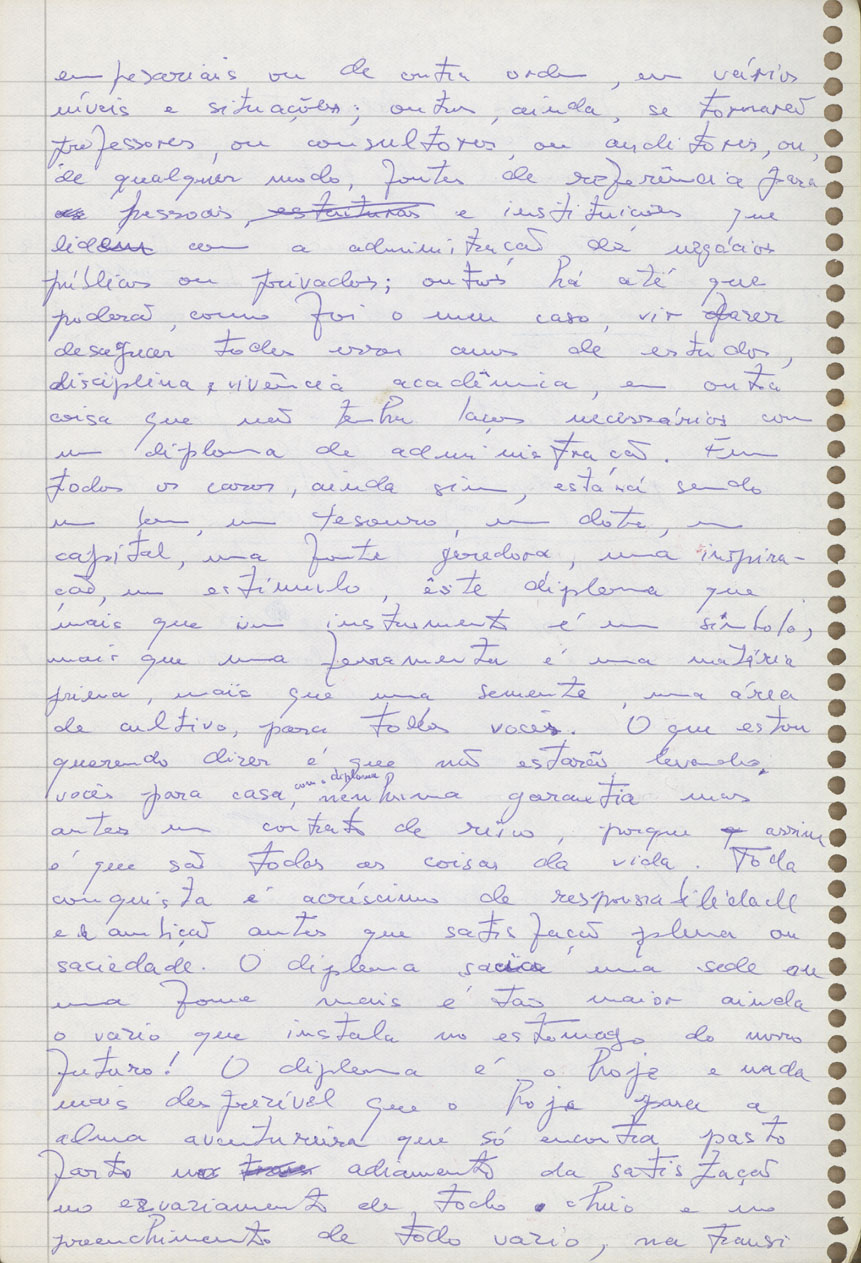 empresariais ou de outra ordem, em vários
níveis e situações; outros, ainda, se tornarão
professores, ou consultores, ou auditores, ou,
de qualquer modo, fontes de referência para
as pessoas, estruturas e instituições que
lidem com a administração de negócios
públicos ou privados; outros há até que
poderão, como foi o meu caso, vir fazer
desaguar todos esses anos de estudos,
disciplina, vivência acadêmica, em outra
coisa que não tenha laços necessários com
um diploma de administração. Em
todos os casos, ainda sim, estará sendo
um bem, um tesouro, um dote, um
capital, uma fonte geradora, uma inspira-
ção, um estímulo, êste diploma que
mais que um instrumento é um símbolo,
mais que uma ferramenta é uma matéria
prima, mais que uma semente, uma área
de cultivo, para todos vocês. O que estou
querendo dizer é que não estarão levando,
vocês para casa, com o diploma, nenhuma garantia mas
antes um contrato de risco, porque assim
é que são todas as coisas da vida. Toda
conquista é acréscimo de responsabilidade
e ambição antes que satisfação plena ou
saciedade. O diploma sacia uma sede ou
uma fome mais é tão maior ainda
o vazio que instala no estômago do novo
futuro! O diploma é o hoje e nada
mais desprezível que o hoje para a
alma aventureira que só encontra pasto
farto no adiamento da satisfação
no esvaziamento de todo cheio e no
preenchimento de todo vazio, na transi